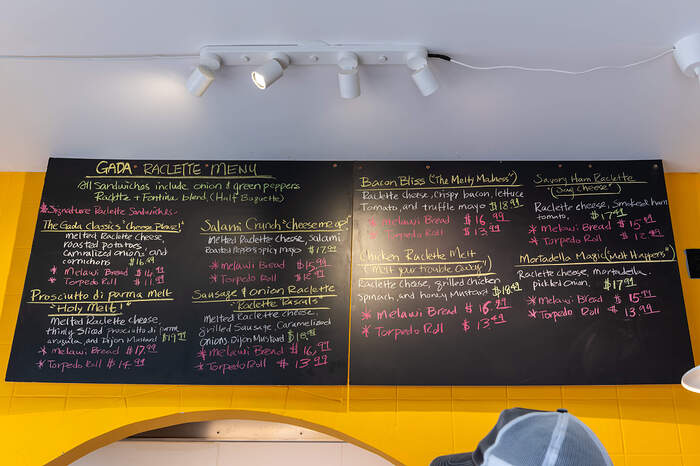 GADA RACLETTE MENU
All Sandwiches include onion & green peppers
Raclette + Fontina blend, (Half Baguette)
* Signature Raclette Sandwiches-
The Gada Classics "Cheese Please!"
melted Raclette cheese,
roasted potatoes,
carmalized onions, and
cornichons $16.99
* Melawi Bread $14.99
* Torpedo Roll $11.99
Prosciutto di parma melt
"Holy Melt!"
Melted Raclette cheese,
thinly Sliced prosciutto di parma
arugula, and Dijon Mustard $19.99
* Melawi Bread $17.99
* Torpedo Roll $14.99
Salami Crunch "cheese me up"
Melted Raclette cheese, Salami
Roasted Peppers, Spicy mayo $17.99
* Melawi Bread $15.99
* Torpedo Roll
Sausage & onion Raclette
"Raclette Rascals"
Melted Raclette cheese,
grilled Sausage, Caramelized
onions, Dijon Mustard $18.99
* Melawi Bread $16.99
* Torpedo Roll $13.99
Bacon Bliss ("The Melty Madness")
Raclette cheese, crispy bacon, lettuce
Tomato, and truffle mayo $18.99
* Melawi Bread $16.99
* Torpedo Roll $13.99
Chicken Raclette Melt
("Melt your trouble away")
Raclette cheese, grilled chicken
Spinach, and honey Mustard $18.99
* Melawi Bread $16.99
* Torpedo Roll $13.99
Savory Ham Raclette
("Say Cheese")
Raclette cheese, Smoked ham
tomato, $17.99
* Melawi Bread $15.99
* Torpedo Roll $12.99
Mortadella Magic ("Melt Happens")
Raclette cheese, mortadella,
pickled onion, $17.99
* Melawi Bread $15.99
* Torpedo Roll $13.99